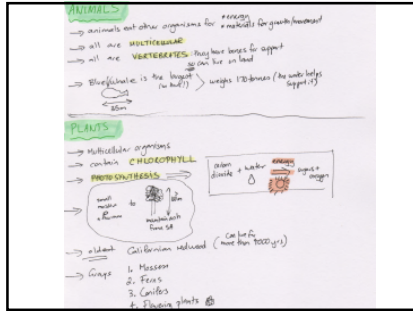 ANIMALS
→ animals eat other organisms for • energy
• materials for growth/movement
→ all are MULTICELLULAR
→ all are VERTEBRATES: they have bones for support
so can live on land
→ Blue whale is the largest
weighs 170 tonnes (the water helps
support it)
25m
PLANTS
→ Multicellular organisms
→ contain CHLOROPHYLL
→ PHOTOSYNTHESIS →
carbon dioxide + water energy → sugars + oxygen
small
mosses to
→ oldest Californian redwood (can live for
more than 4000 yrs)
→ Groups
1. Mosses
2. Ferns
3. Conifers
4. Flowering plants